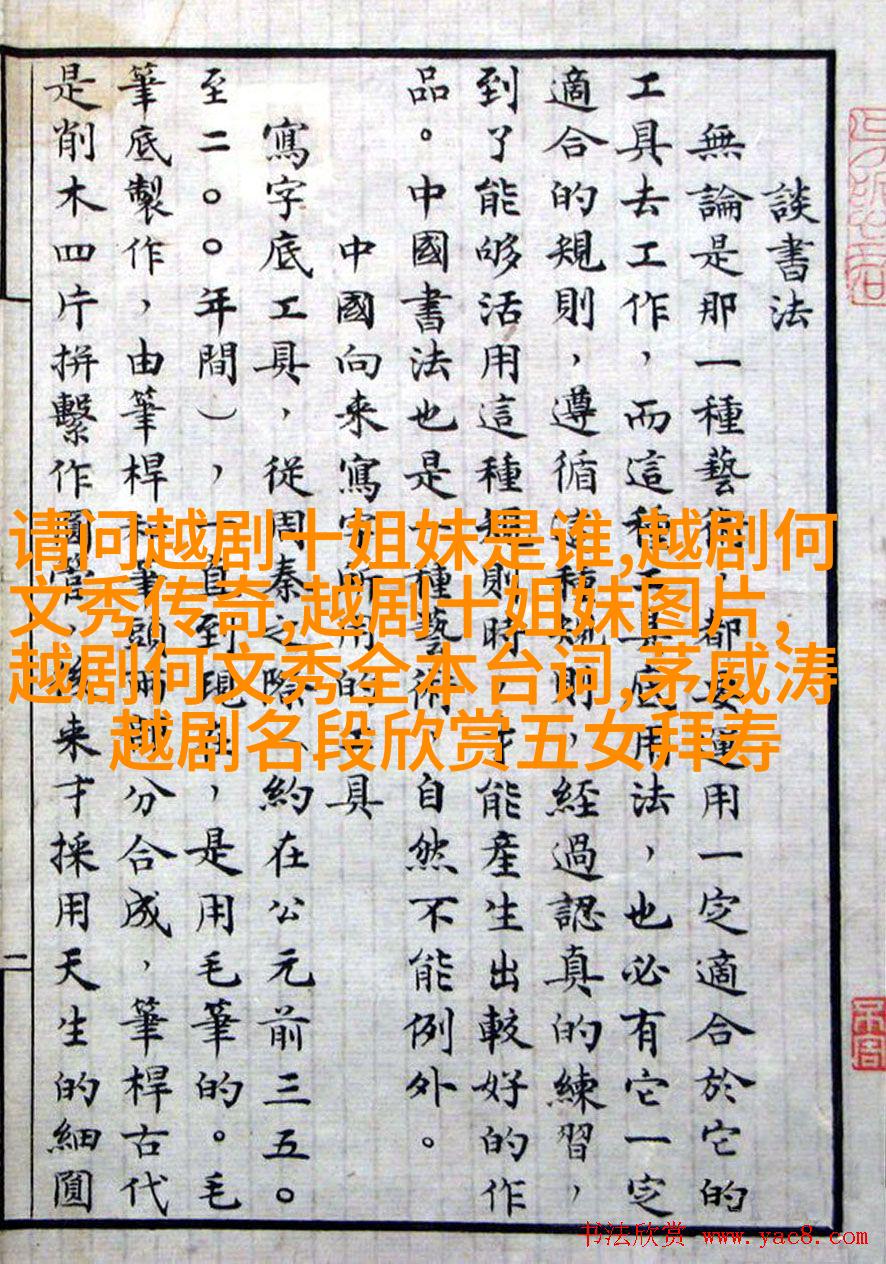 談書法
無論是那一種藝術，都要運用一定適合於它的
工具去工作，而這種工具它用法，也必有它一定
適合的規則，遵循這種規則，經過認真的練習，
到了能够活用這種規則時，才能產生出較好的作
品。中國書法也是一種藝術，自然不能例外。
中國向来寫字所用的工具
寫字底工具，從周秦之際（約在公元前三五〇
至二〇〇年間），一直到現在，是用毛筆的。毛
筆底製作，由筆桿和筆頭兩部分合成，筆桿古代
是削木四片拼繫作圓管，後来才採用天生的細圓
二
请问越剧十姐妹是谁,越剧何
文秀传奇,越剧十姐妹图片,
越剧何文秀全本台词,茅威涛
越剧名段欣赏五女拜寿
书法欣赏 www.yac8.com